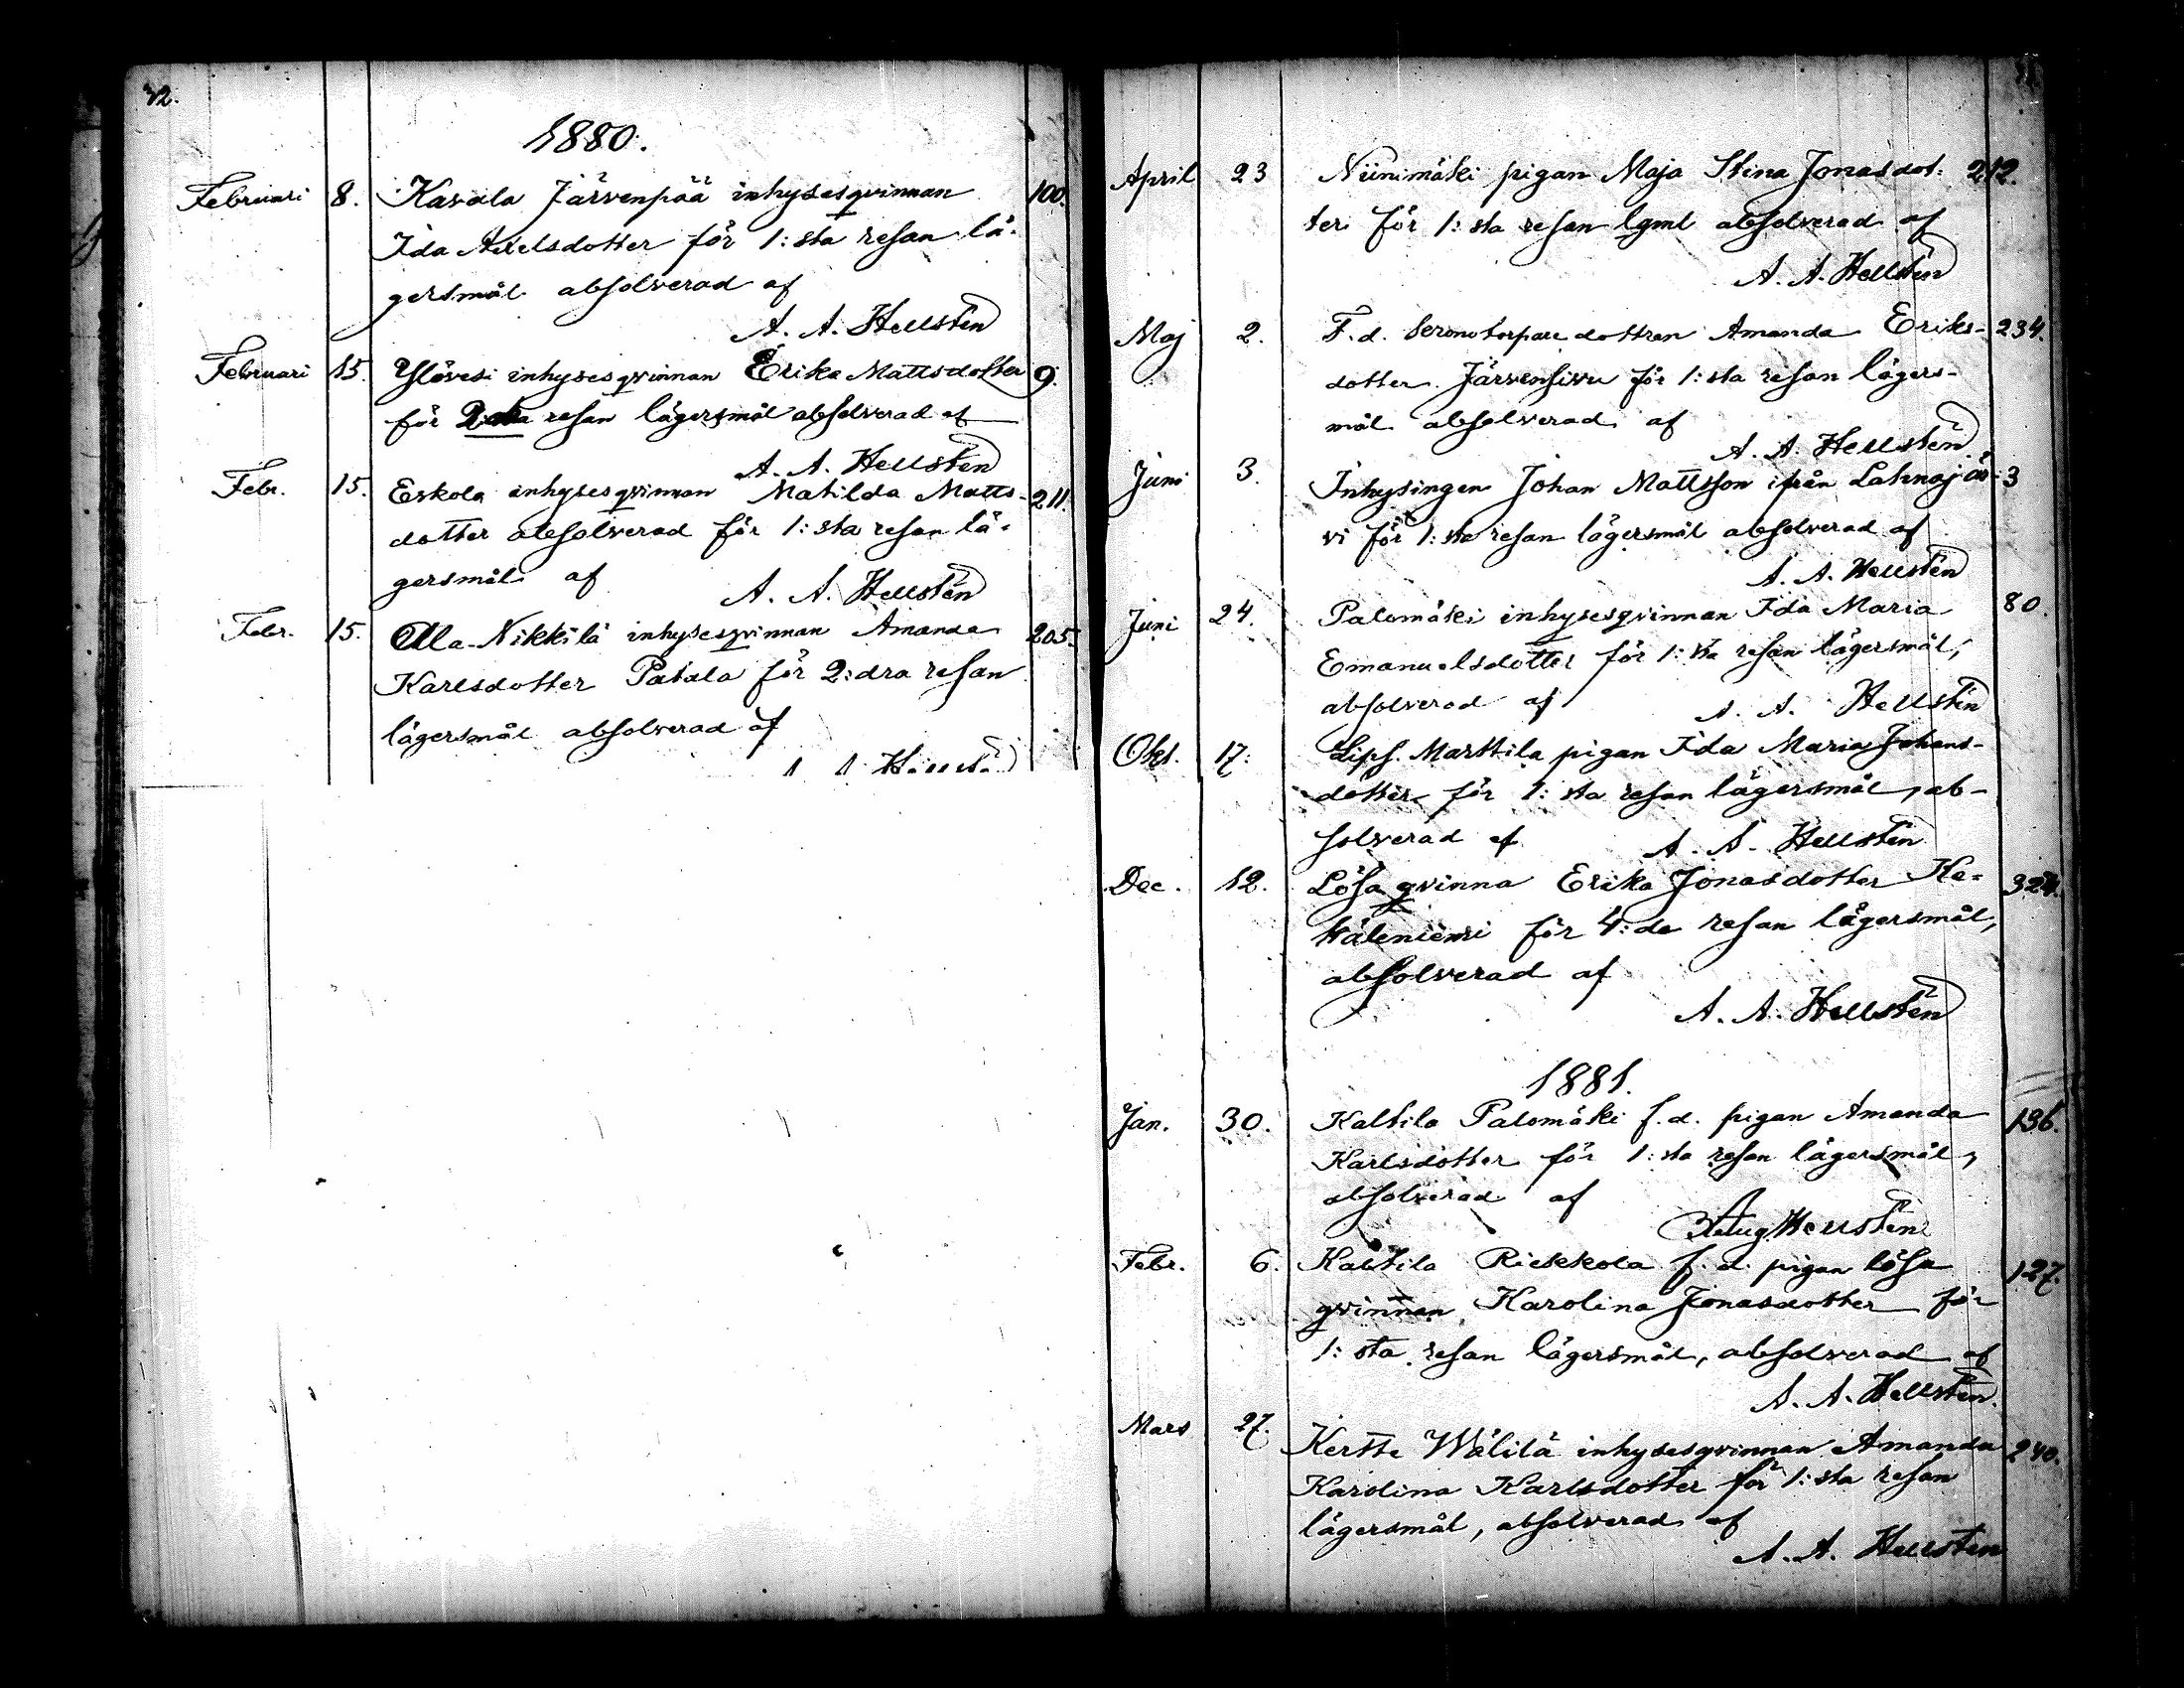 32.
1880.
Februari 8. Kavala Järvenpää inhysesqvinnan 100.
Ida Axelsdotter för 1:sta resan lä-
gersmål absolverad af
A. A. Hellstén
Februari 15. Ylövesi inhysesqvinnan Erika Mattsdotter 9.
för 2:dra resan lägersmål absolverad af
A. A. Hellstén
Febr. 15. Eskola inhysesqvinnan Matilda Matts- 211.
dotter absolverad för 1:sta resan lä-
gersmål af
A. A. Hellstén
Febr. 15. Ala-Nikkilä inhysesqvinnan Amanda 205.
Karlsdotter Patala för 2:dra resan
lägersmål absolverad af
April 23 Niinimäki pigan Maja Stina Jonasdot- 212.
ter för 1:sta resan lgml absolverad af
A. A. Hellstén
Maj 2. F.d. Kronotorpare dottren Amanda Eriks- 234.
dotter Järvensivu för 1:sta resan lägers-
mål absolverad af
A. A. Hellstén
Juni 3. Inhysingen Johan Mattsson ifrån Lahnajär- 3
vi för 1:sta resan lägersmål absolverad af
A. A. Hellstén
Juni 24. Palomäki inhysesqvinnan Ida Maria 80.
Emanuelsdotter för 1:sta resan lägersmål,
absolverad af
A. A. Hellstén
Okt. 17. Marttila pigan Ida Maria Johans-
dotter för 1:sta resan lägersmål, ab-
solverad af
A. A. Hellstén
Dec. 12. Lösa qvinna Erika Jonasdotter Ke- 324.
för 4:de resan lägersmål,
absolverad af
A. A. Hellstén
1881.
Jan. 30. Kaltila Palomäki f.d. pigan Amanda 136.
Karlsdotter för 1:sta resan lägersmål,
absolverad af
Aug. Hellstén
Febr. 6. Kaltila Riekkola f.d. pigan lösa 127.
qvinnan Karolina Jonasdotter för
1:sta resan lägersmål, absolverad af
A. A. Hellstén.
Mars 27. Kertte Wälilä inhysesqvinnan Amanda 240.
Karolina Karlsdotter för 1:sta resan
lägersmål, absolverad af
A. A. Hellstén